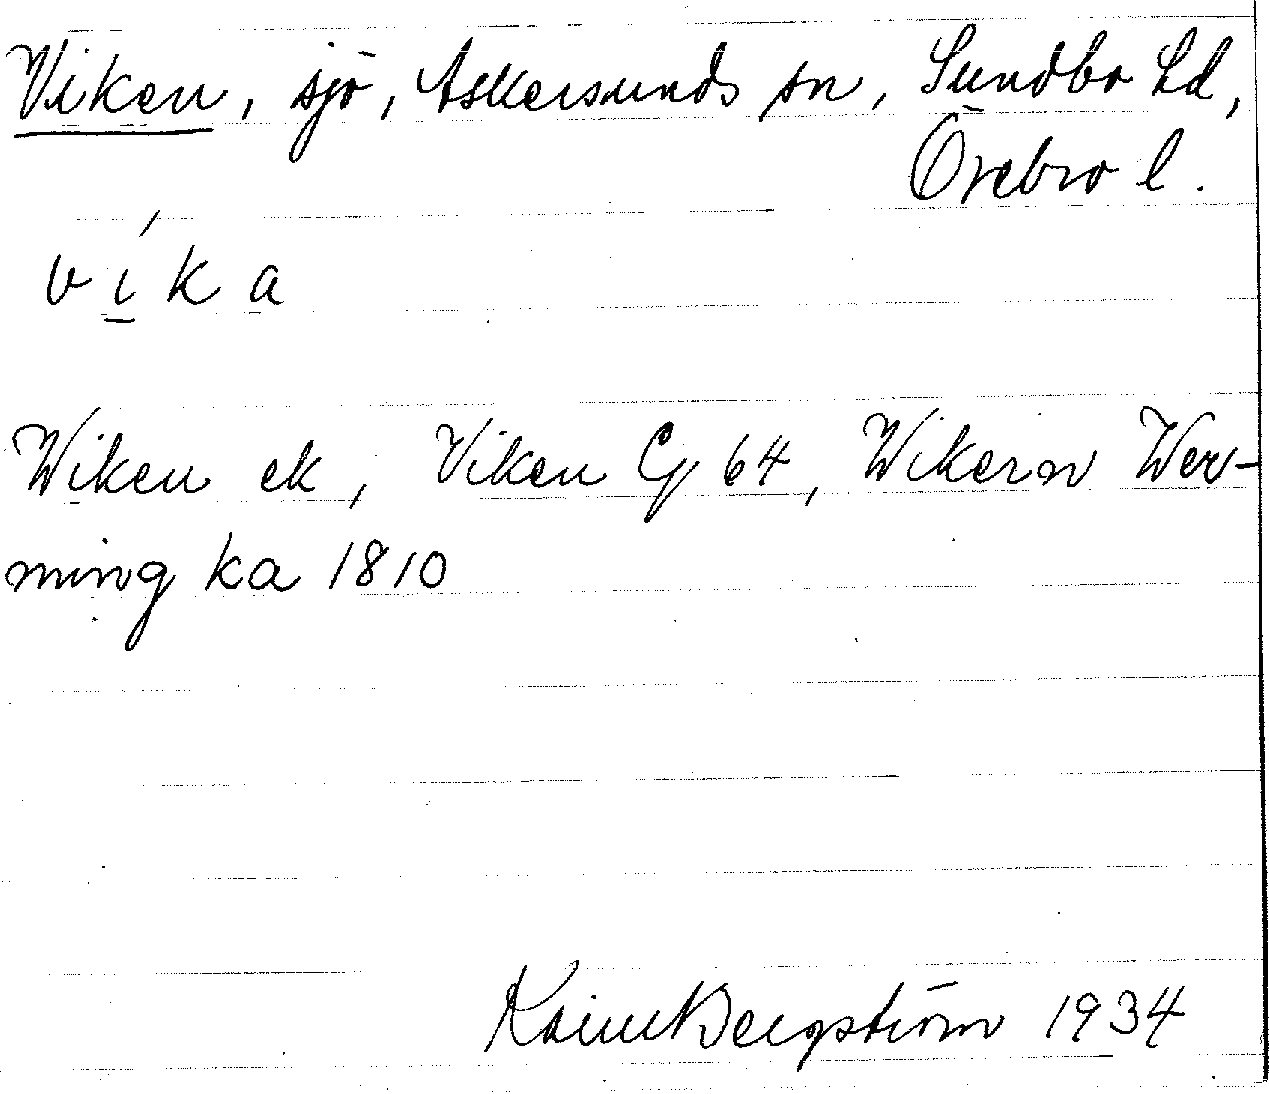 Viken, sjö, Askersunds sn, Sundbo hd,
Örebro l.
víka
Wiken ek, Viken Gf 64, Wikern Wer-
ming ka 1810
Bergström 1934